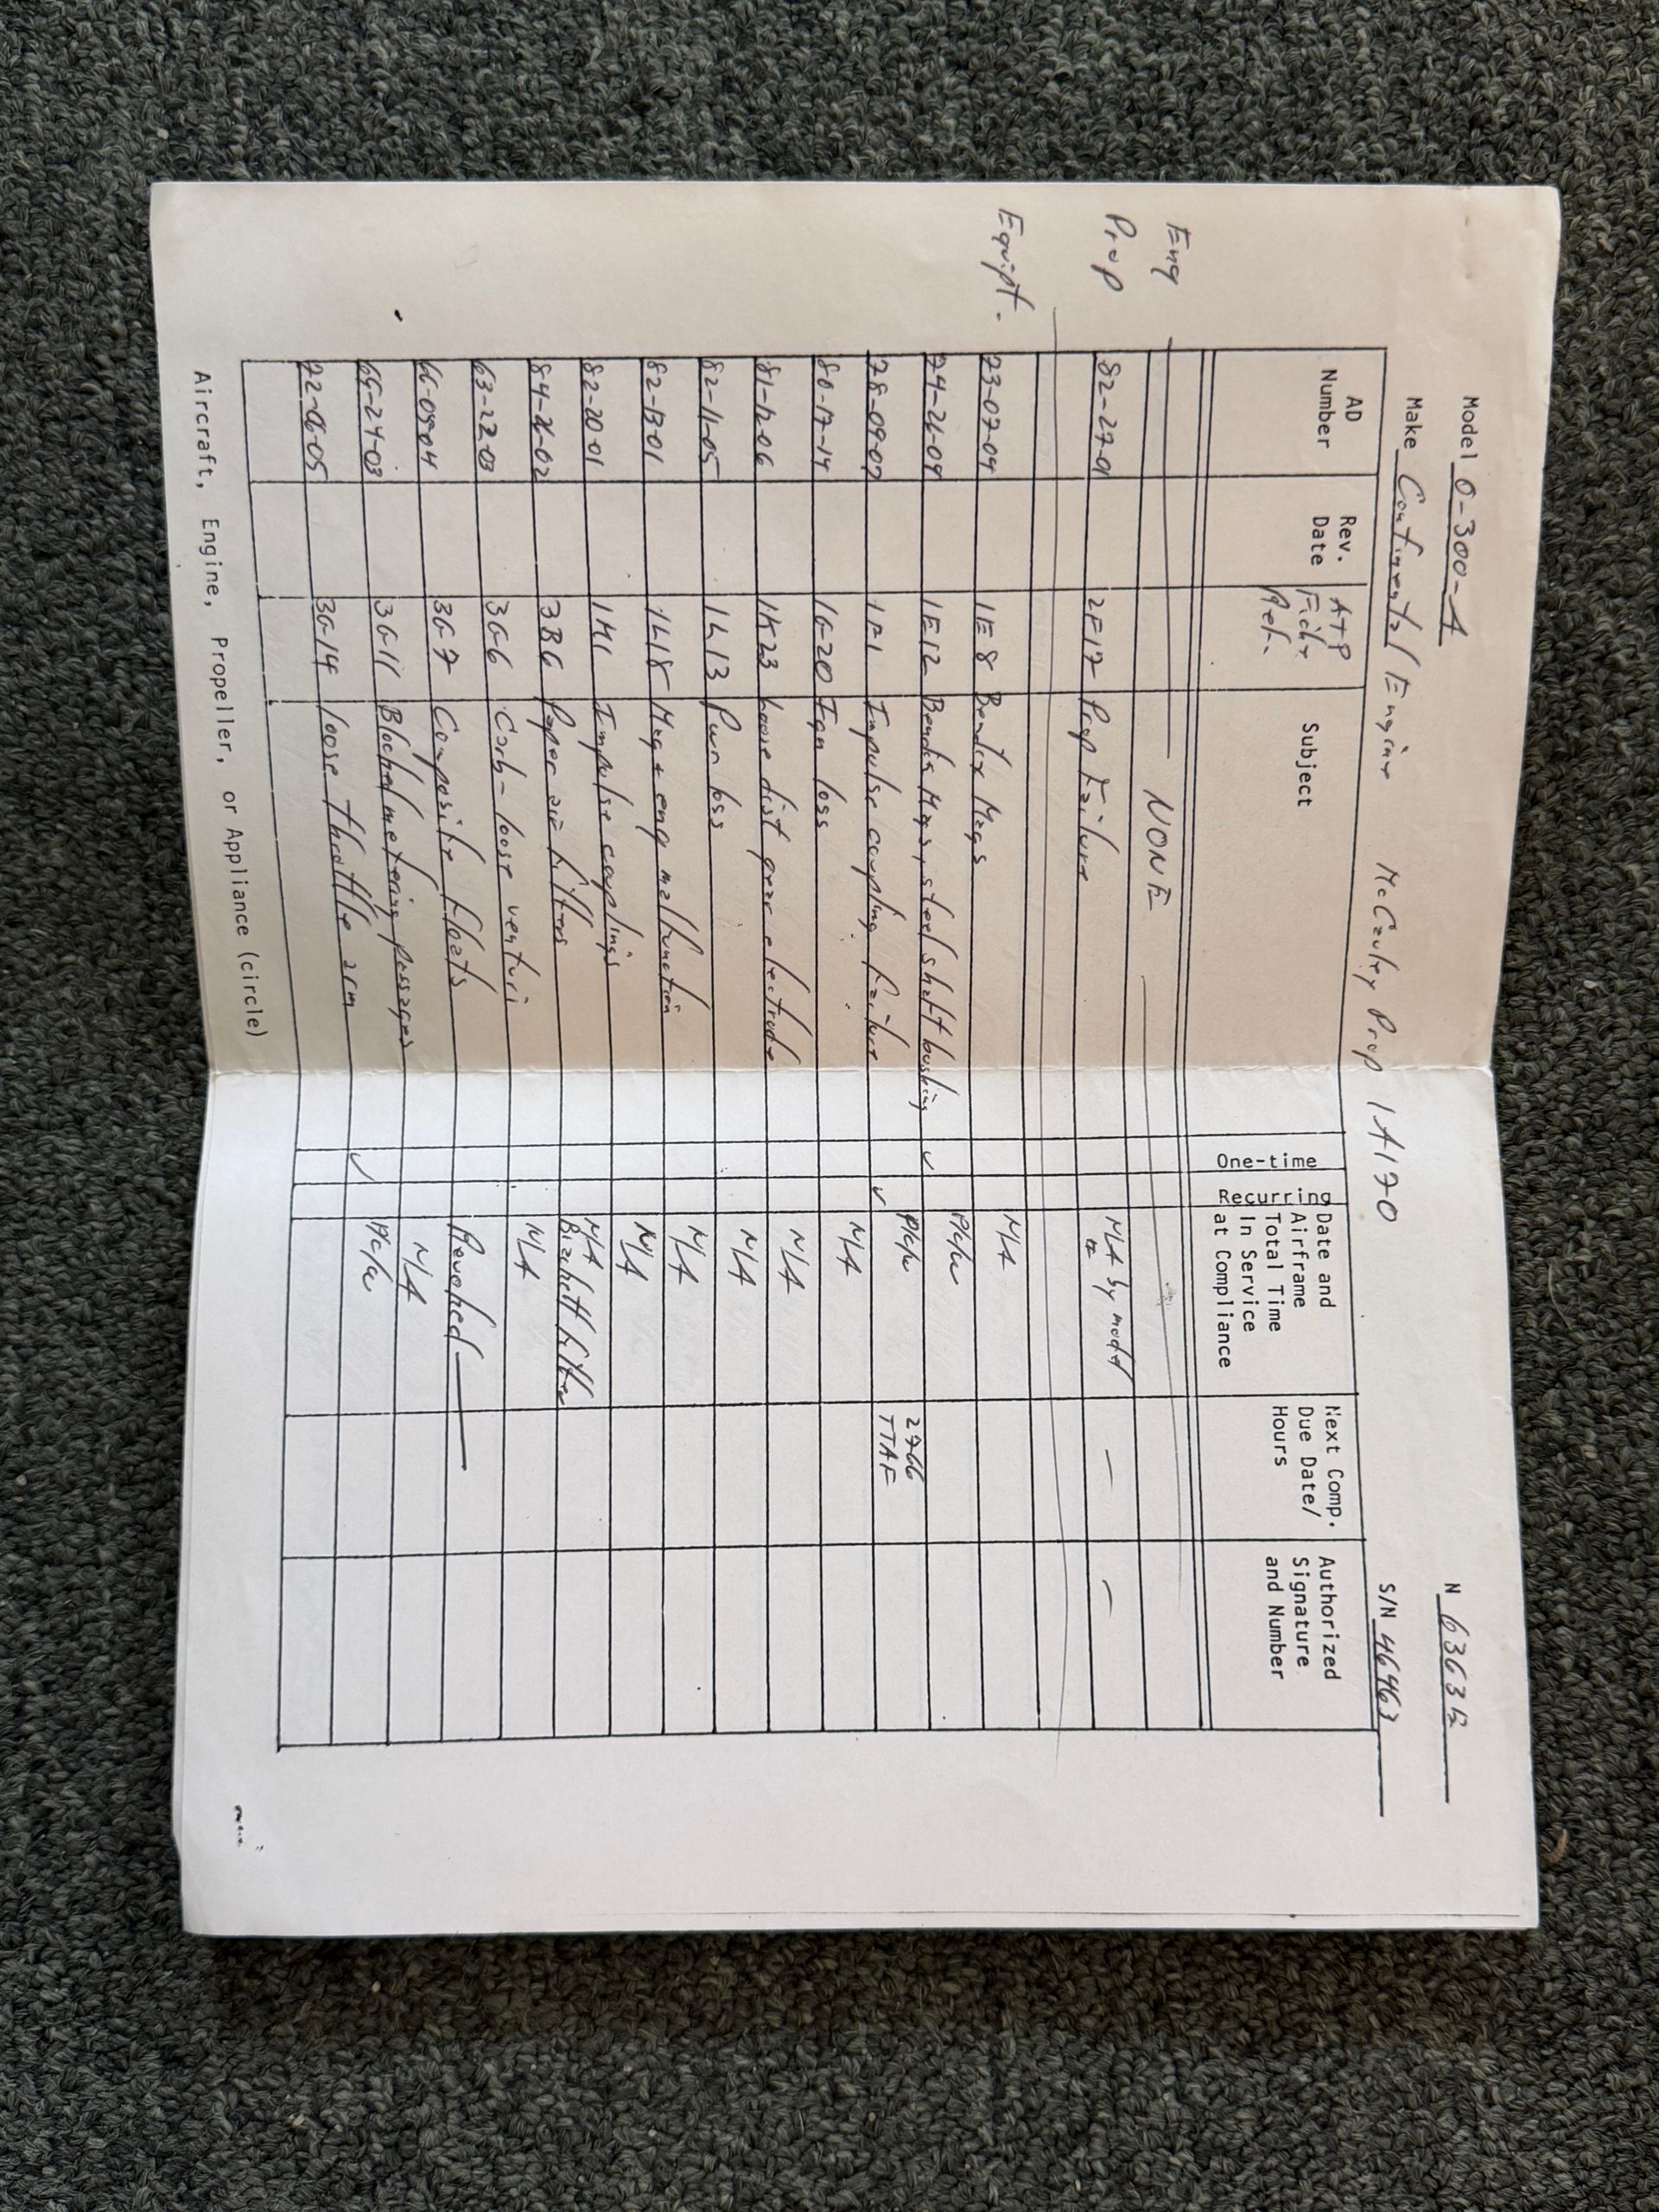 Model O-300-A N 6363B
Make Continental Engine McCauley Prop 1A170 S/N 46463
AD Number Rev. Date ATP Fiche Ref. Subject One-time Recurring Date and Airframe Total Time In Service at Compliance Next Comp. Due Date/ Hours Authorized Signature and Number
Eng NONE
Prop 82-27-01 2F17 Prop Failure N/A by model — —
Equipt. 73-07-04 1E8 Bendix Mags N/A
74-26-09 1E12 Bendix Mags, steel shaft bushing ✓ P/c/w
78-09-07 1F1 Impulse coupling failure ✓ P/c/w 2766 TTAF
80-17-14 1G-20 Ign loss N/A
81-12-06 1K23 Loose dist gear electrode N/A
82-11-05 1L13 Pwr loss N/A
82-13-01 1L18 Mag + eng malfunction N/A
82-20-01 1M1 Impulse couplings N/A
84-26-02 3B6 Paper air filters N/A Brackett filter
63-22-03 3G6 Carb - loose venturi N/A
66-05-04 3G7 Composite floats Revoked —
69-24-03 3G11 Blocked metering passages N/A
72-06-05 3G-14 loose throttle arm ✓ P/c/w
Aircraft, Engine, Propeller, or Appliance (circle)